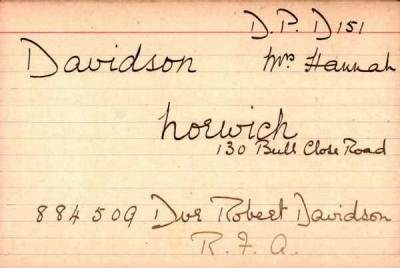 D. P. D 151
Davidson Mrs Hannah
Norwich
130 Bull Close Road
884509 Dvr Robert Davidson
R. F. A.